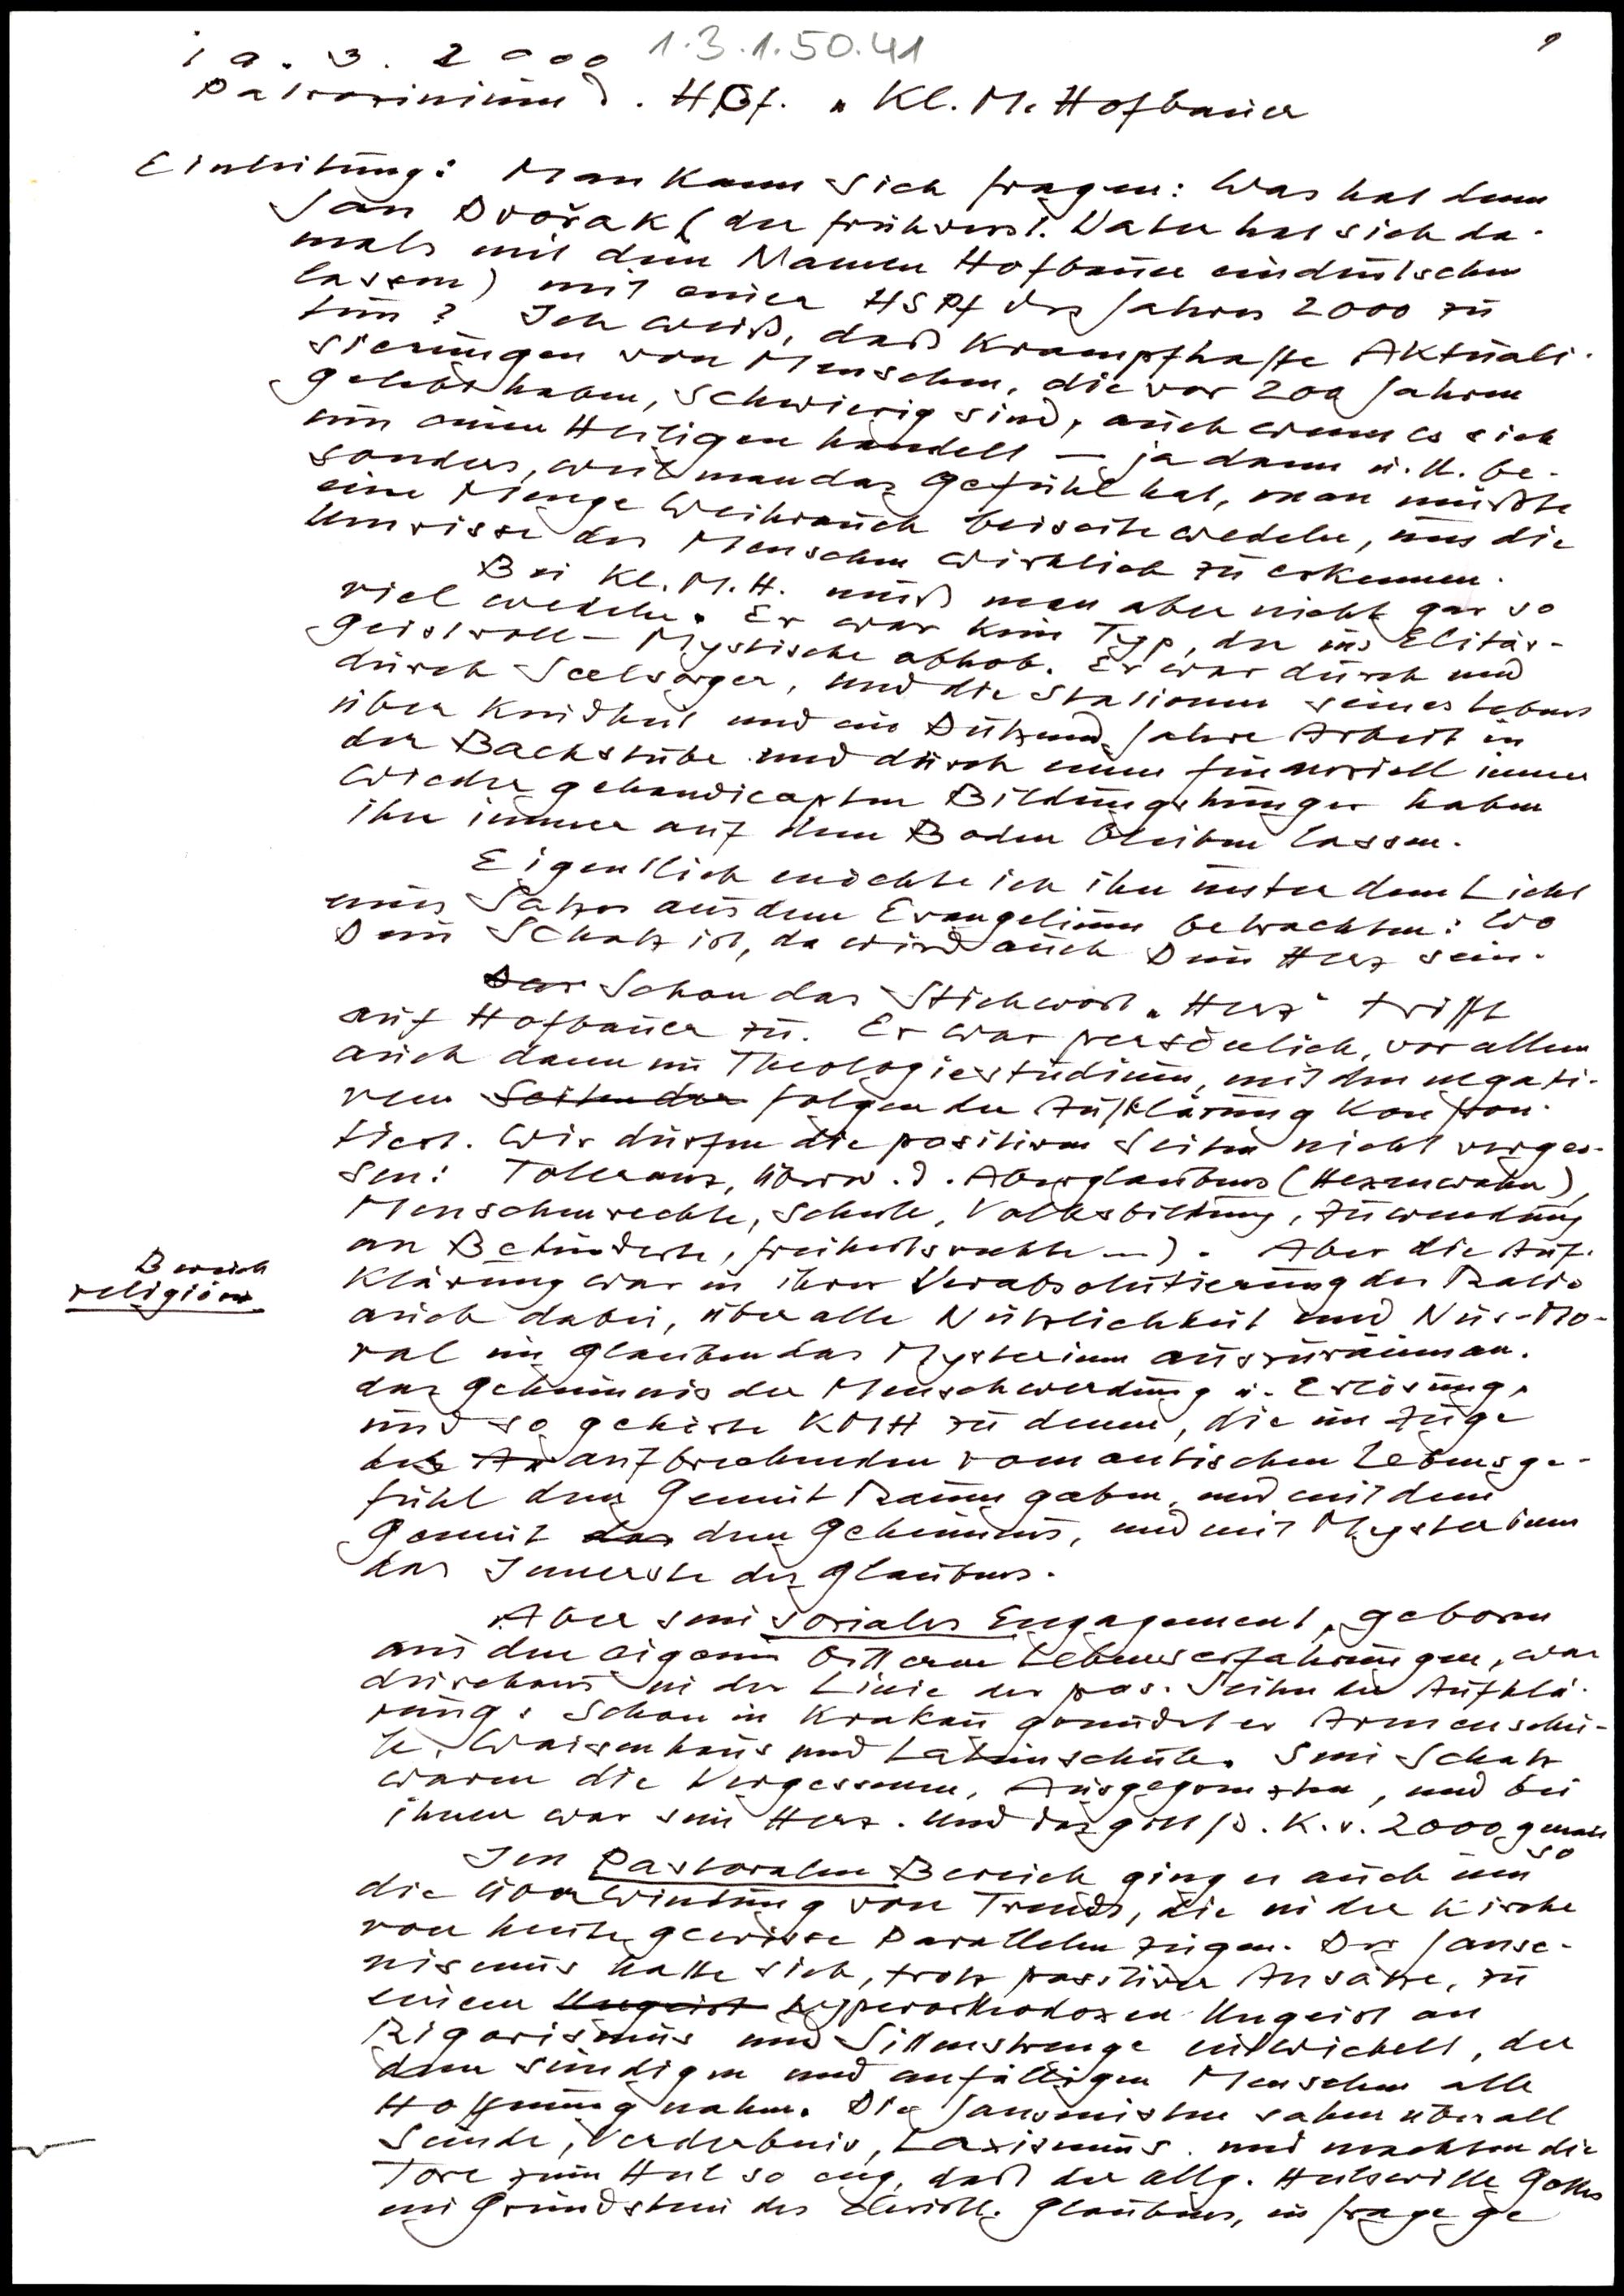 1.3.1.50.41
1
1 9 . 3 . 2 0 0 0
Patrozinium d. HSPf. „Kl. M. Hofbauer
Einleitung: Man kann sich fragen: Was hat denn
Jan Dvořak (der frühverst. Vater hat sich da-
mals mit dem Namen Hofbauer eindeutschen
lassen) mit einer HSPf des Jahres 2000 zu
tun? Ich weiß, daß krampfhafte Aktuali-
sierungen von Menschen, die vor 200 Jahren
gelebt haben, schwierig sind, auch wenn es sich
um einen Heiligen handelt – ja dann u. U. be-
sonders, weil man das Gefühl hat, man müßte
eine Menge Weihrauch beiseite wedeln, um die
Umrisse des Menschen wirklich zu erkennen.
Bei Kl. M. H. muß man aber nicht gar so
viel wedeln. Er war kein Typ, der ins Elitär-
Geistvoll-Mystische abhob. Er war durch und
durch Seelsorger, und die Stationen seines Lebens
über Kindheit und ein Dutzend Jahre Arbeit in
der Backstube und durch einen finanziell immer
wieder gehandicapten Bildungshunger haben
ihn immer auf dem Boden bleiben lassen.
Eigentlich möchte ich ihn unter dem Licht
eines Satzes aus dem Evangelium betrachten: Wo
Dein Schatz ist, da wird auch Dein Herz sein.
Schon das Stichwort „Herz“ trifft
auf Hofbauer zu. Er war persönlich, vor allem
auch dann im Theologiestudium, mit den negati-
ven Folgen der Aufklärung konfron-
tiert. Wir dürfen die positiven Seiten nicht verges-
sen: Toleranz, Überw. d. Aberglaubens (Hexenwahn),
Menschenrechte, Schule, Volksbildung, Zuwendung
an Behinderte, Freiheitsrechte ...). Aber die Auf-
Bereich
religiös
klärung war in ihrer Verabsolutierung der Ratio
auch dabei, über alle Nützlichkeit und Nur-Mo-
ral im Glauben das Mysterium auszuräumen.
das Geheimnis der Menschwerdung u. Erlösung,
und so gehörte KMH zu denen, die im Zuge
des aufbrechenden romantischen Lebensge-
fühl dem Gemüt Raum gaben, und mit dem
Gemüt dem Geheimnis, und mit Mysterium
das Innerste des Glaubens.
Aber sein soziales Engagement, geboren
aus den eigenen bitteren Lebenserfahrungen, war
durchaus in der Linie der pos. Seiten der Aufklä-
rung: Schon in Krakau gründet er Armenschu-
le, Waisenhaus und Lateinschule. Sein Schatz
waren die Vergessenen, Ausgegrenzten, und bei
ihnen war sein Herz. Und das gilt f. d. K. v. 2000 genau
so
Im Pastoralen Bereich ging es auch um
die Überwindung von Trends, die in der Kirche
von heute gewisse Parallelen zeigen. Der Janse-
nismus hatte sich, trotz positiver Ansätze, zu
einem hyperorthodoxen Ungeist an
Rigorismus und Sittenstrenge entwickelt, der
dem sündigen und anfälligen Menschen alle
Hoffnung nahm. Die Jansenisten sahen überall
Sünde, Verderbnis, Laxismus. und machten die
Tore zum Heil so eng, daß der allg. Heilswille Gottes
ein Grundstein des christl. Glaubens, in Frage ge